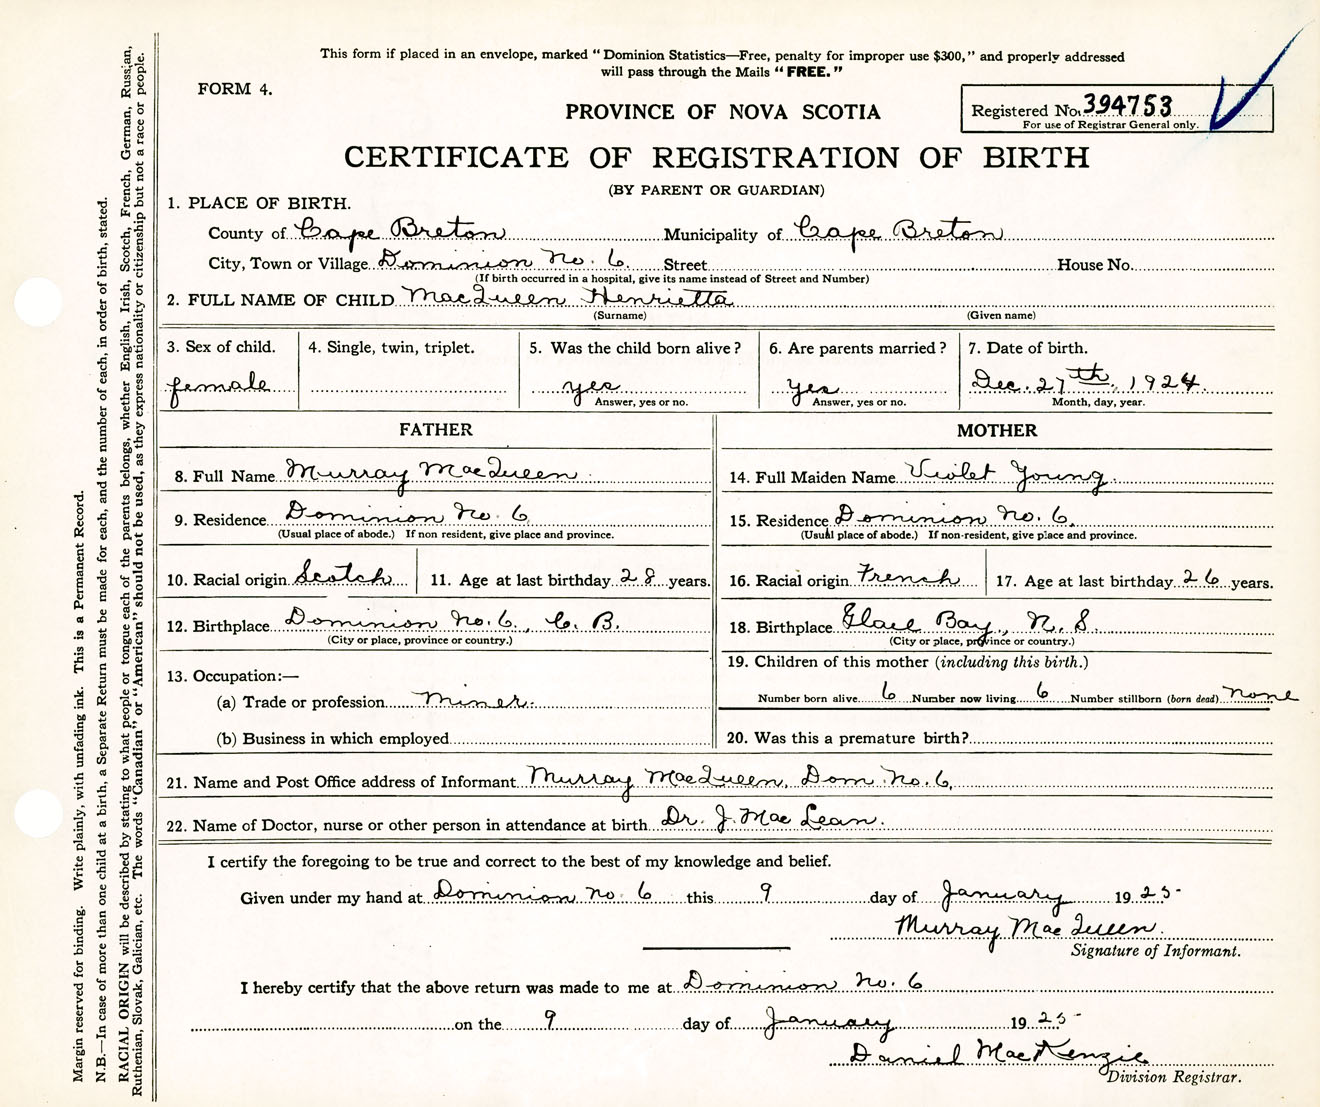 This form if placed in an envelope, marked "Dominion Statistics—Free, penalty for improper use $300," and properly addressed
will pass through the Mails "FREE."
FORM 4.
PROVINCE OF NOVA SCOTIA
Registered No. 394753
For use of Registrar General only.
CERTIFICATE OF REGISTRATION OF BIRTH
(BY PARENT OR GUARDIAN)
1. PLACE OF BIRTH.
County of Cape Breton Municipality of Cape Breton
City, Town or Village Dominion No. 6. Street House No.
(If birth occurred in a hospital, give its name instead of Street and Number)
2. FULL NAME OF CHILD MacQueen Henrietta
(Surname) (Given name)
3. Sex of child. 4. Single, twin, triplet. 5. Was the child born alive? 6. Are parents married? 7. Date of birth.
female yes yes Dec. 27th, 1924.
Answer, yes or no. Answer, yes or no. Month, day, year.
FATHER MOTHER
8. Full Name Murray MacQueen. 14. Full Maiden Name Violet Young.
9. Residence Dominion No. 6 15. Residence Dominion No. 6.
(Usual place of abode.) If non resident, give place and province. (Usual place of abode.) If non-resident, give place and province.
10. Racial origin Scotch 11. Age at last birthday 28 years. 16. Racial origin French 17. Age at last birthday 26 years.
12. Birthplace Dominion No. 6., C. B. 18. Birthplace Glace Bay, N. S.
(City or place, province or country.) (City or place, province or country.)
13. Occupation:— 19. Children of this mother (including this birth.)
(a) Trade or profession Miner. Number born alive 6 Number now living 6 Number stillborn (born dead) none
(b) Business in which employed 20. Was this a premature birth?
21. Name and Post Office address of Informant Murray MacQueen, Dom. No. 6,
22. Name of Doctor, nurse or other person in attendance at birth Dr. J. MacLean.
I certify the foregoing to be true and correct to the best of my knowledge and belief.
Given under my hand at Dominion No. 6 this 9 day of January 1925-
Murray MacQueen.
Signature of Informant.
I hereby certify that the above return was made to me at Dominion No. 6
on the 9 day of January 1925-
Daniel MacKenzie
Division Registrar.
Margin reserved for binding. Write plainly, with unfading ink. This is a Permanent Record.
N.B.—In case of more than one child at a birth, a Separate Return must be made for each, and the number of each, in order of birth, stated.
RACIAL ORIGIN will be described by stating to what people or tongue each of the parents belongs, whether English, Irish, Scotch, French, German, Russian,
Ruthenian, Slovak, Galician, etc. The words "Canadian" or "American" should not be used, as they express nationality or citizenship but not a race or people.